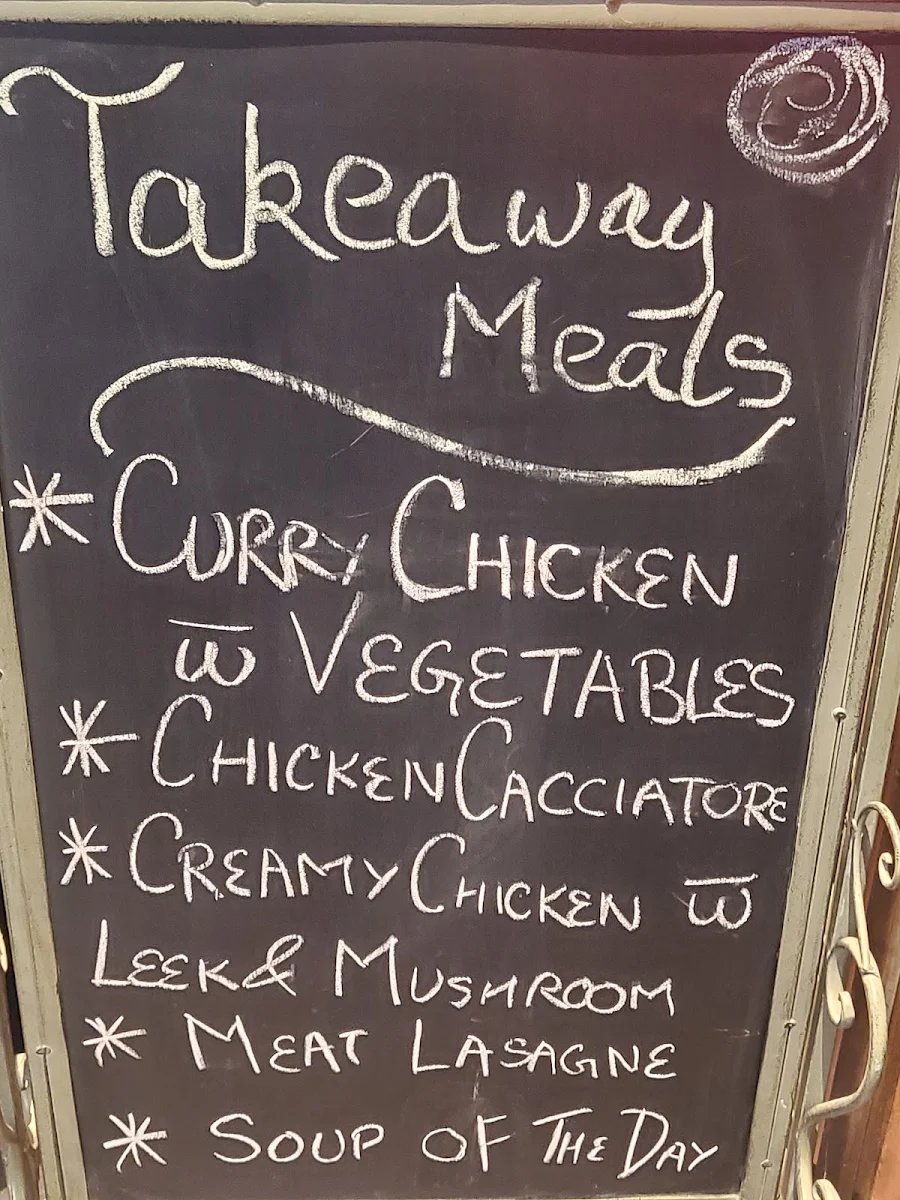 Takeaway
Meals
* CURRY CHICKEN
w̅ VEGETABLES
* CHICKEN CACCIATORE
* CREAMY CHICKEN w̅
LEEK & MUSHROOM
* MEAT LASAGNE
* SOUP OF THE DAY